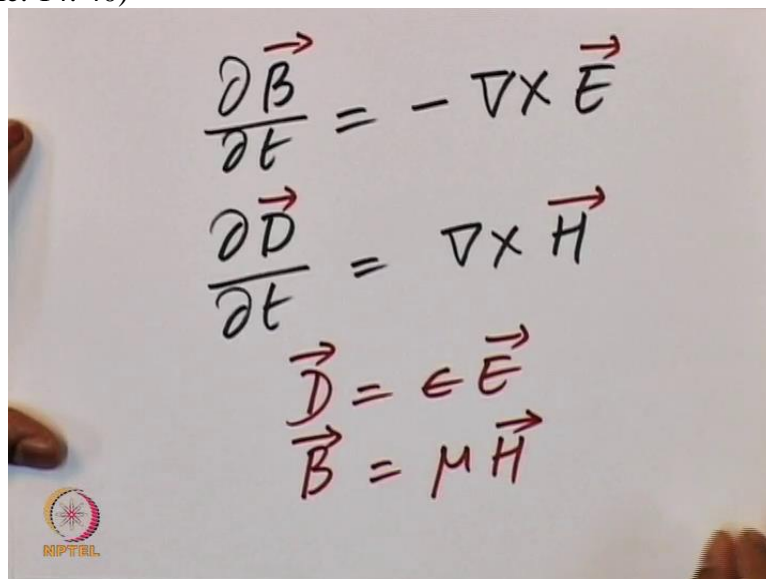 ∂B⃗/∂t = - ∇ × E⃗
∂D⃗/∂t = ∇ × H⃗
D⃗ = ϵ E⃗
B⃗ = μ H⃗
NPTEL